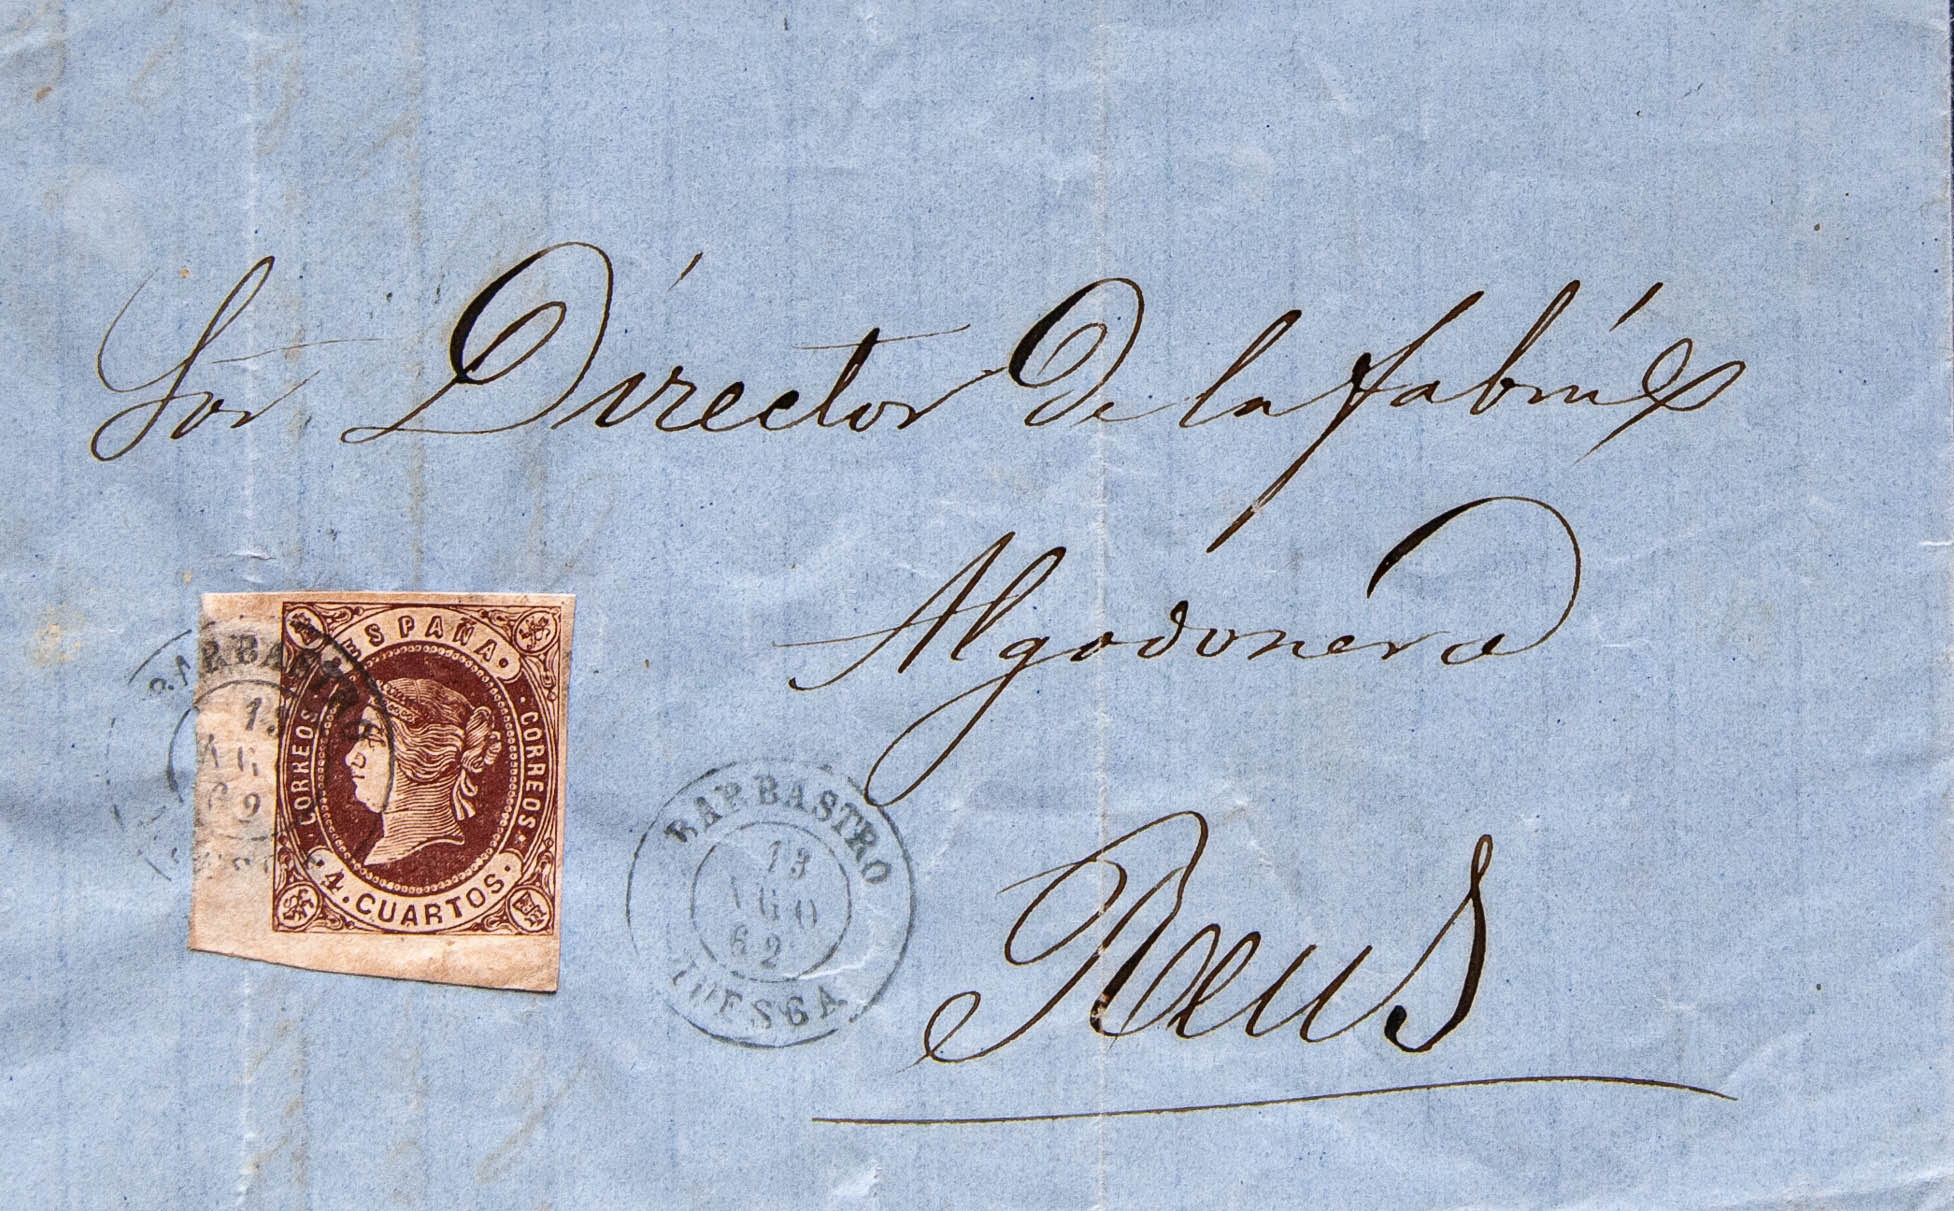 Sor Director de la fabríca
Algodonera
Reus
ESPAÑA
CORREOS
CORREOS
4. CUARTOS.
BARBASTRO
13
BARBASTRO
13
AGO
62
HUESCA